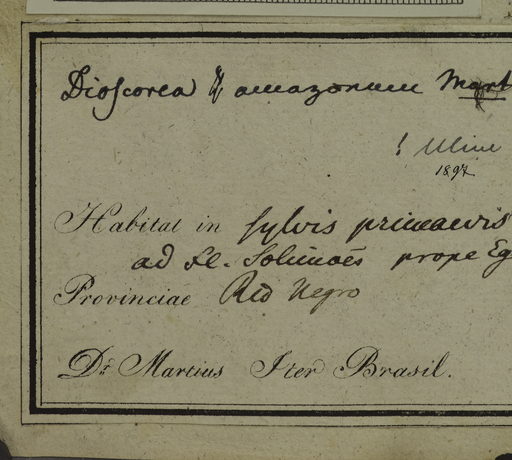 Dioscorea amazonum Mart
! Uline
1897
Habitat in sylvis primaevis
ad fl. Solimoës prope Eg
Provinciae Rio Negro
Dr. Martius Iter Brasil.